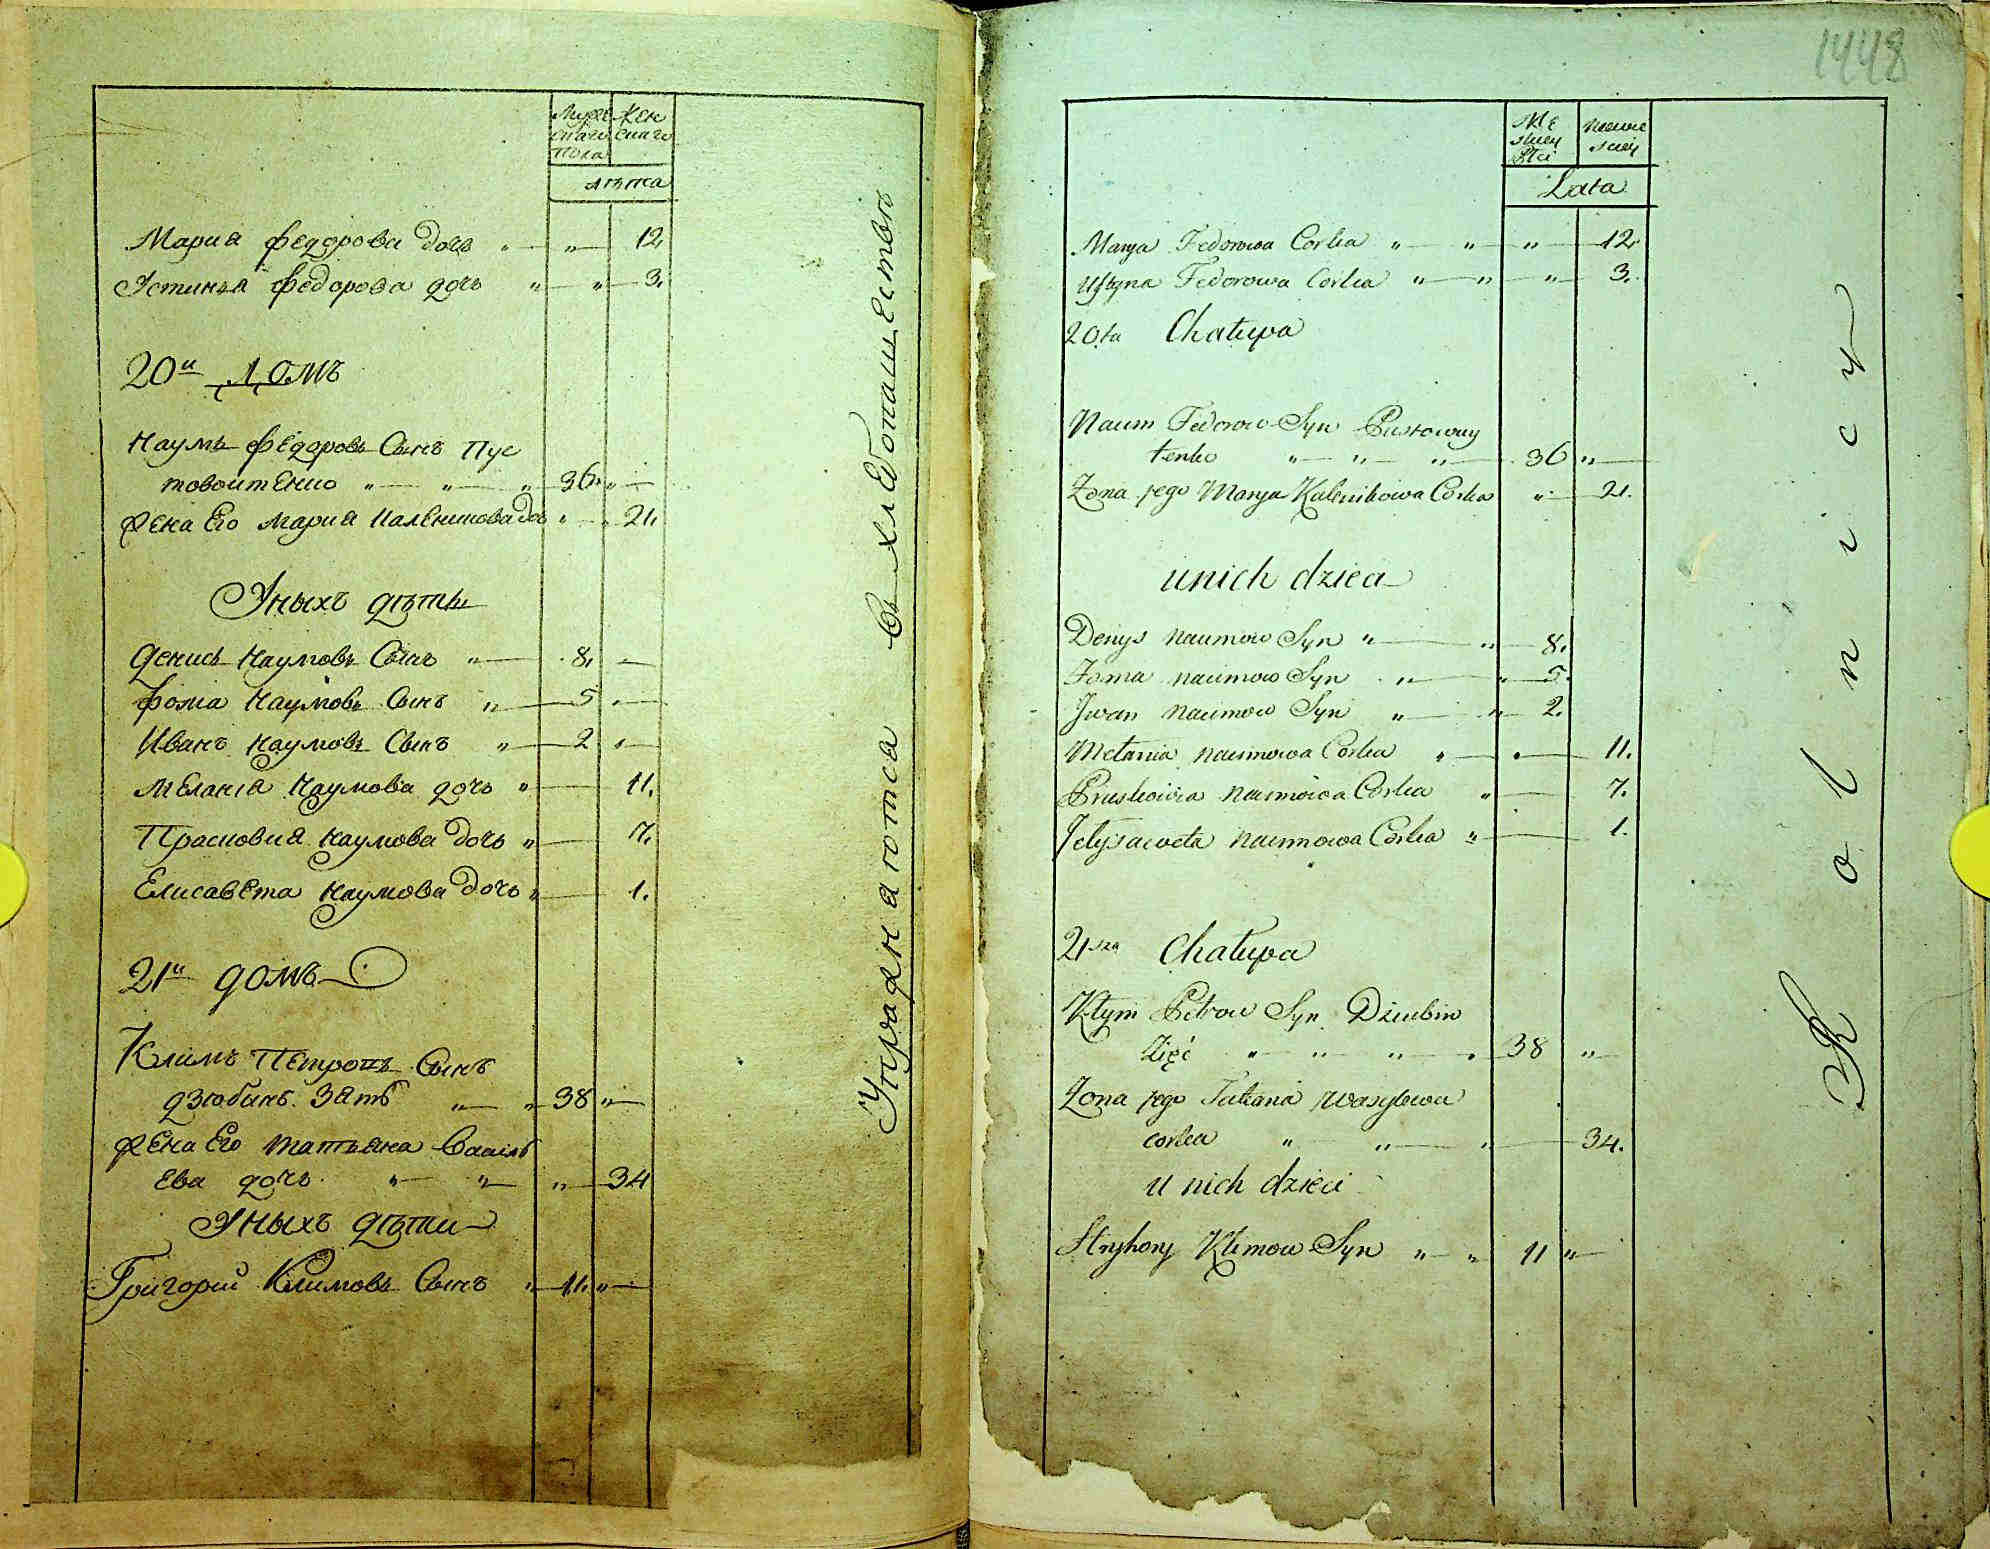 Мужескаго пола
Женскаго
лѣта
Мария Федорова дочь " " 12.
Устинья Федорова дочь " " 3.
20й домъ
Наумъ Федоровъ Сынъ Пус
товойтенко " " " 36. "
жена Его Мария Каленикова дочь " " 21.
Уныхъ дѣти
Денисъ Наумовъ Сынъ " 8.
Фома Наумовъ Сынъ " 5 "
Иванъ Наумовъ Сынъ " 2 "
Меланія Наумова дочь " 11.
Прасковия Наумова дочь " 7.
Елисавета Наумова дочь " 1.
21й домъ
Климъ Петровъ Сынъ
дзюбинъ Зять " " 38 "
жена Его татьяна Василь
ева дочь " " " 34
Уныхъ дѣти
Григорий Климовъ Сынъ " 11. "
Упражняются въ хлебопашествѣ
1448
Męskiey Płci
Niewieskiey
Lata
Marya Fedorowa Corka " " " 12.
Ustyna Fedorowa Corka " " " 3.
20ta Chałupa
Naum Fedorow Syn Pustowoy
tenko " " " 36 "
Zona jego Marya Kalenikowa Corka " 21.
unich dzieci
Denys Naumow Syn " " 8.
Foma Naumow Syn " " 5.
Jwan Naumow Syn " " 2.
Mełania Naumowa Corka " " 11.
Praskowia Naumowa Corka " 7.
Jelysaweta Naumowa Corka " 1.
21sza Chałupa
Kłym Petrow Syn Dziubin
Zięć " " " " 38 "
Zona jego Tatiana Wasylewa
corka " " " 34.
u nich dzieci
Hryhory Klimow Syn " " 11 "
Rolnicy